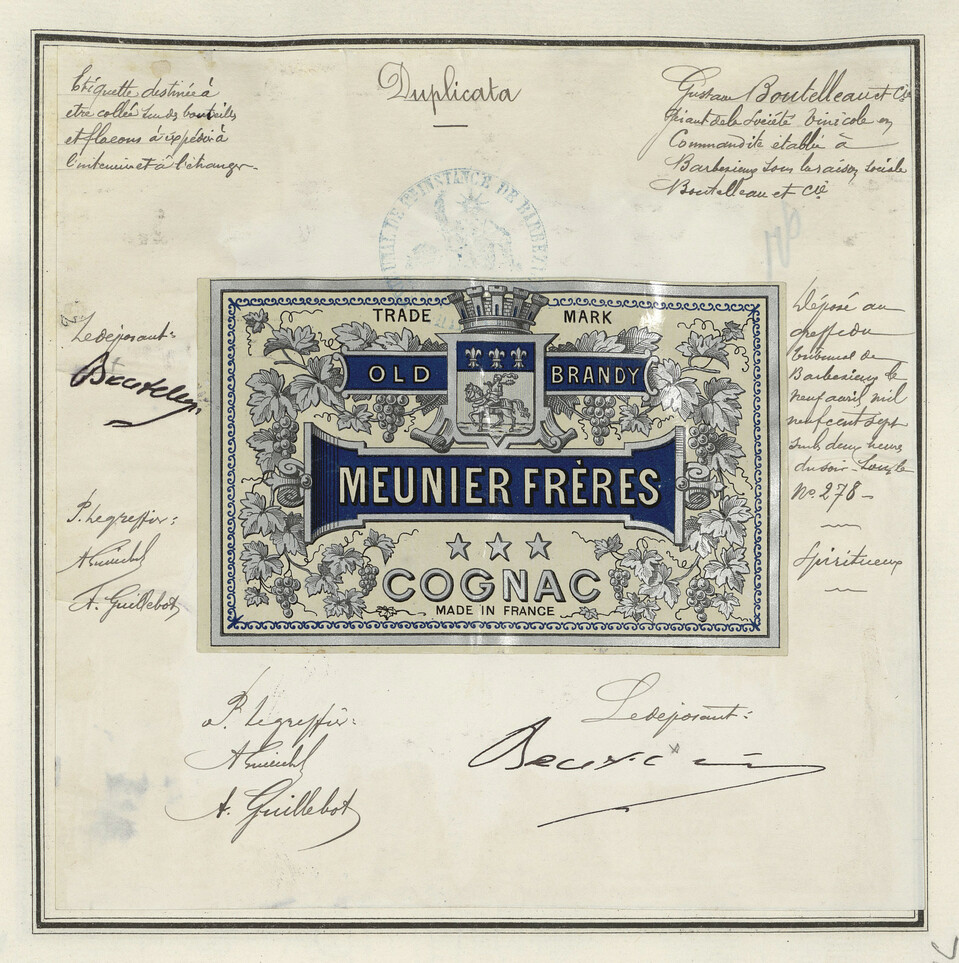 Etiquette destinée à
etre collée sur des bouteilles
et flacons à expédier à
l'interieur et à l'étranger
Duplicata
Gustave Boutelleau et Cie
gérant de la Société Vinicole en
Commandite établie à
Barbezieux sous la raison sociale
Boutelleau et Cie
TRIBUNAL DE 1ERE INSTANCE DE BARBEZIEUX
Le déposant:
Boutelleau
P. le greffier:
A. Guillebot
TRADE MARK
OLD BRANDY
MEUNIER FRÈRES
COGNAC
MADE IN FRANCE
Déposé au
greffe du
tribunal de
Barbezieux le
neuf avril mil
neuf cent sept
sur les deux heures
du soir sous le
No 278 –
Spiritueux
P. le greffier:
A. Guillebot
Le déposant: